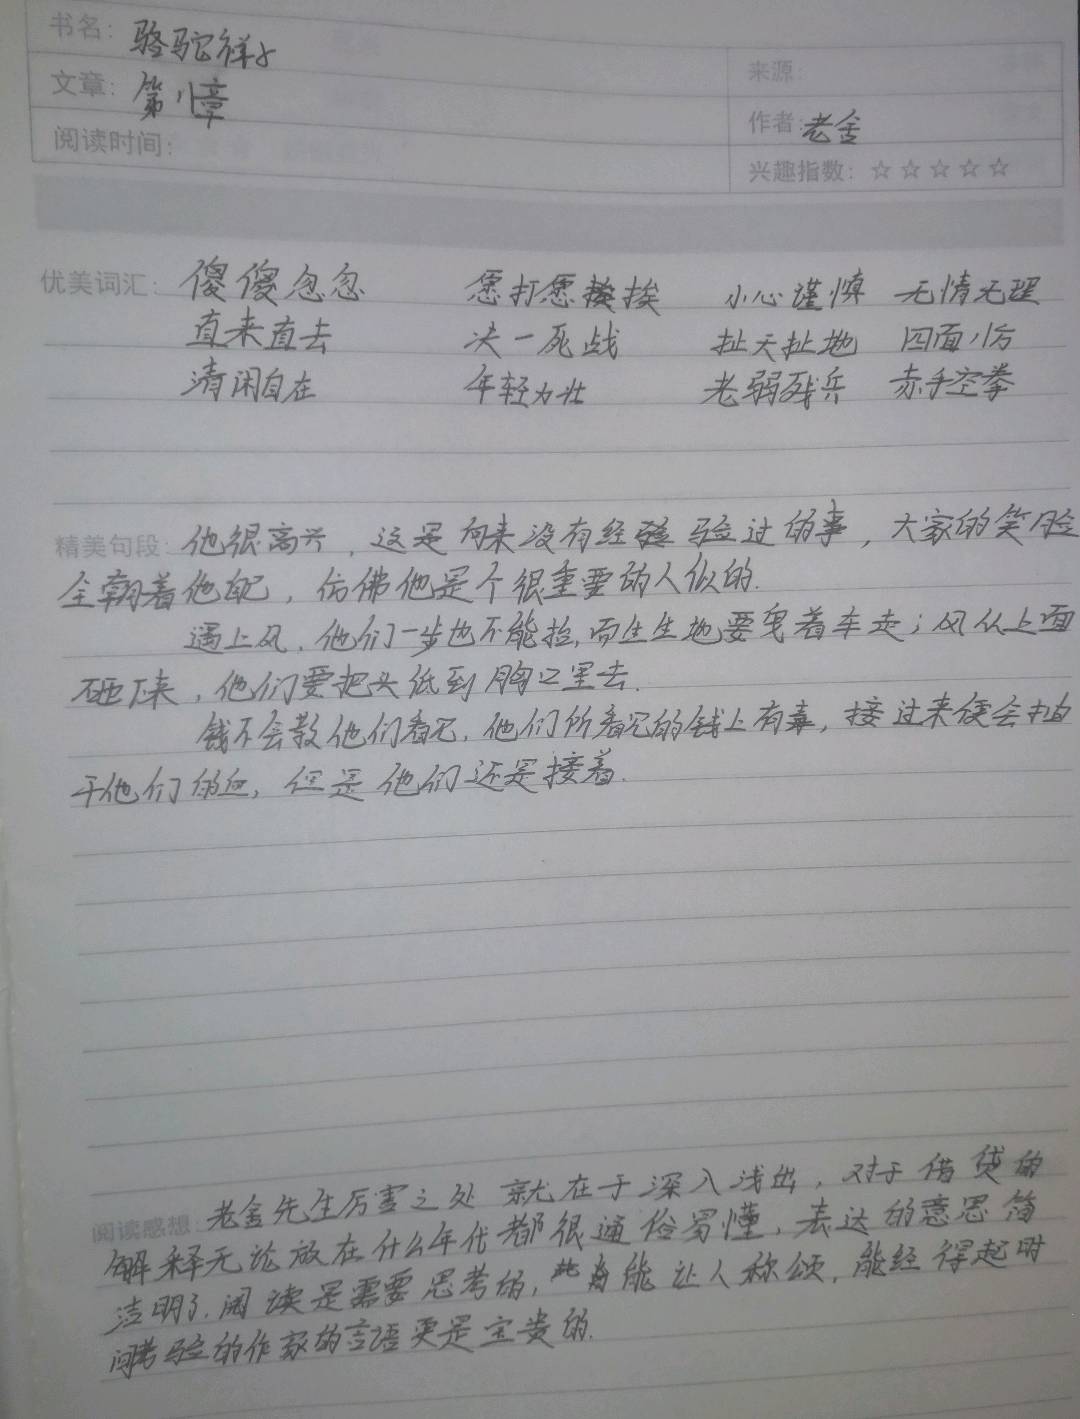 书名: 骆驼祥子
来源:
文章: 第八章
作者: 老舍
阅读时间:
兴趣指数: ☆☆☆☆☆
优美词汇: 傻傻忽忽 愿打愿挨 小心谨慎 无情无理
直来直去 决一死战 扯天扯地 四面八方
清闲自在 年轻力壮 老弱残兵 赤手空拳
精美句段: 他很高兴,这是向来没有经验过的事,大家的笑脸
全朝着他自己,仿佛他是个很重要的人似的.
遇上风,他们一步也不能抬,而生生地要曳着车走;风从上面
砸下来,他们要把头低到胸口里去.
钱不会教他们看见,他们所看见的钱上有毒,接过来便会抽
干他们的血,但是他们还是接着.
阅读感想: 老舍先生厉害之处就在于深入浅出,对于借贷的
解释无论放在什么年代都很通俗易懂,表达的意思简
洁明了.阅读是需要思考的,能让人称颂,能经得起时
间考验的作家的言语更是宝贵的.